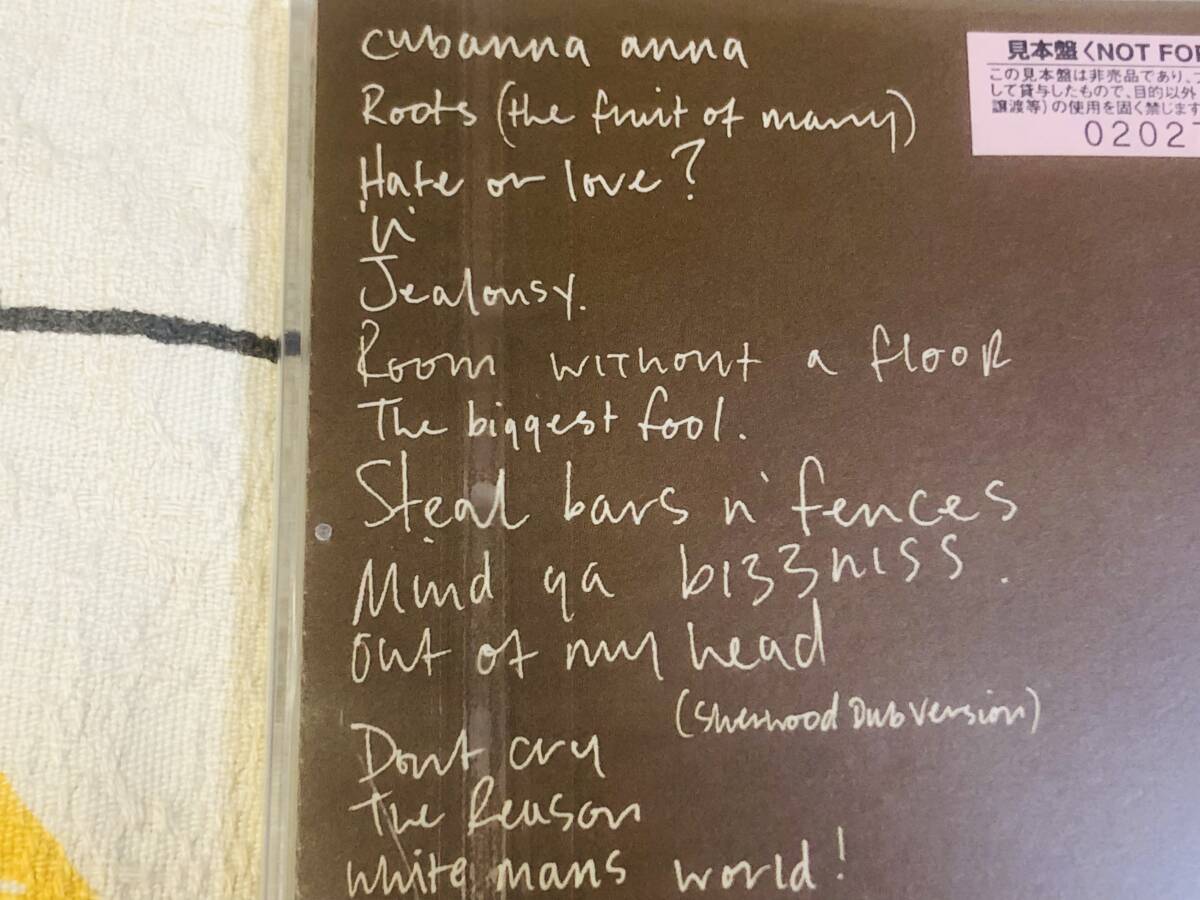 cubanna anna
Roots (the fruit of many)
Hate or love?
'n'
Jealousy.
Room without a flooR
The biggest fool.
Steal bars n' fences
Mind ya bizzniss.
out of my head
(Sherwood Dub Version)
Dont cry
The Reason
white mans world!
見本盤〈NOT FOR
この見本盤は非売品であり、
して貸与したもので、目的以外
譲渡等)の使用を固く禁じます
0202